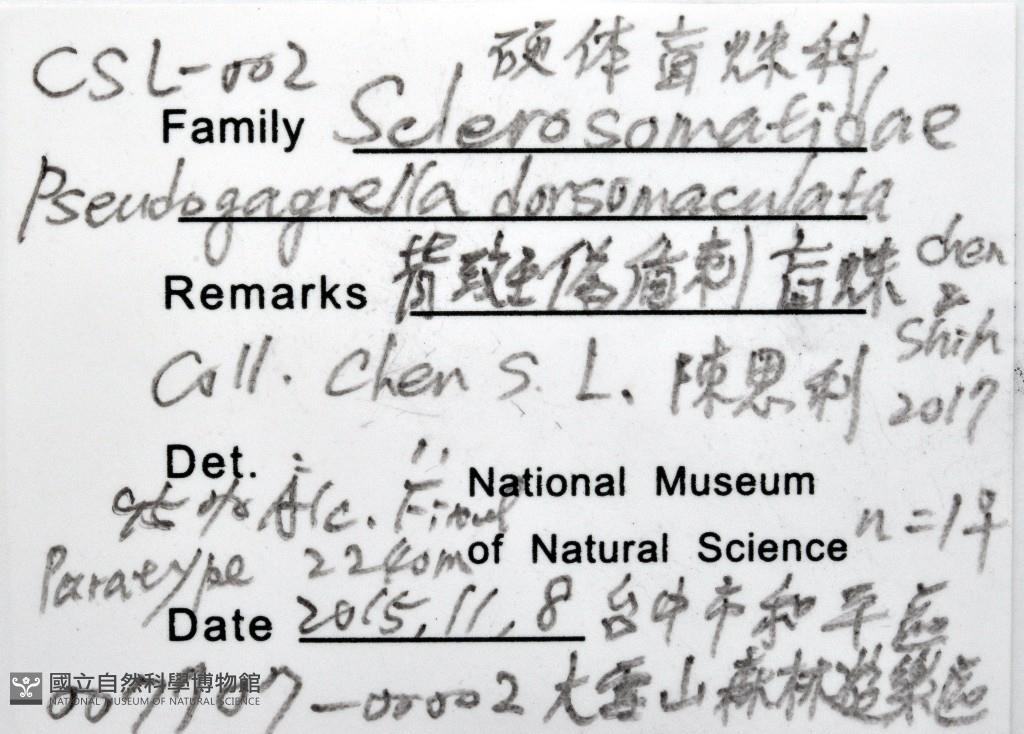 CSL-002 硬体盲蛛科
Family Sclerosomatidae
Pseudogagrella dorsomaculata
Remarks 背斑偽盾刺盲蛛 Chen & Shih 2017
Coll. Chen S. L. 陳思利
Det. 〃 National Museum
Alc. Fixed of Natural Science n=1♀
Paratype 2240m
Date 2015,11,8 台中市和平區
-00002 大雪山森林遊樂區
國立自然科學博物館
NATIONAL MUSEUM OF NATURAL SCIENCE